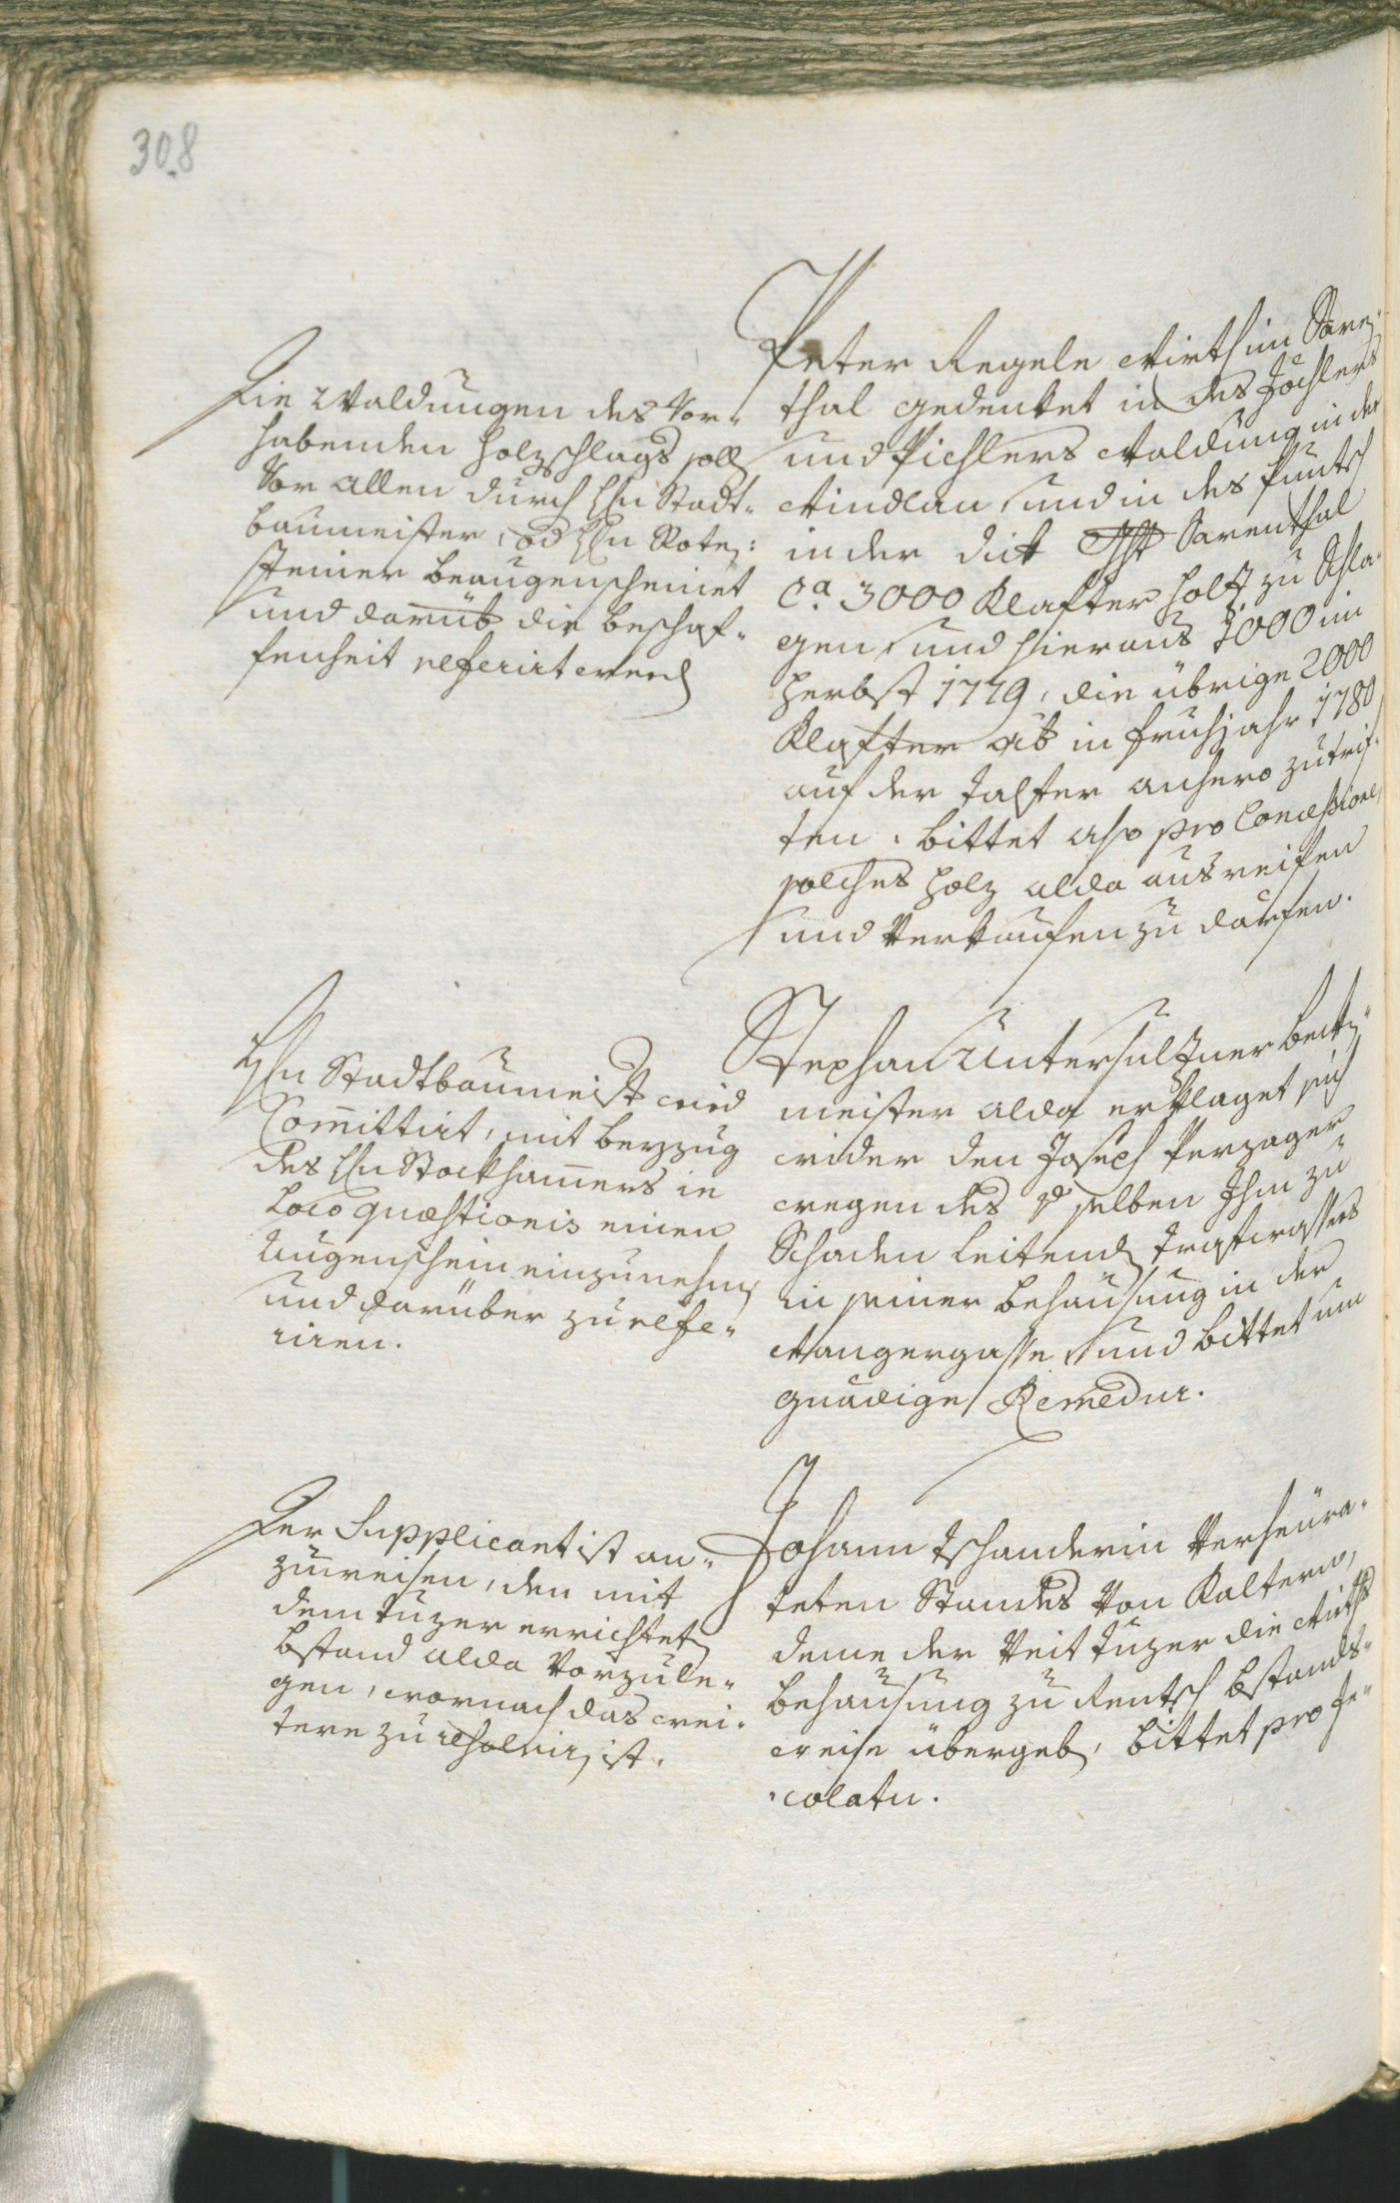 308
Die Waldungen des Vor-
habenden Holzschlags solle
Vor allen durch Hln Stadt-
baumeister, od Hln Roten-
steiner beaugenscheinet
und darüb die beschaf-
fenheit referirt werden
Peter Regele Wirth im Saren-
thal gedenket in des Jöchlers
und Pichlers Waldung in der
Windlau und in des Puntsch
in der Dik Ghts Sarenthal
Ca. 3000 Klafter Holz zu Schla-
gen und hieraus 1000 im
Herbst 1779, die übrige 2000
Klafter ab in fruhjahr 1780
auf der Talfer anhero zutrif-
ten. bittet also pro Concessione
solches Holz alda ausreifen
und Verkaufen zu därfen.
Hln Stadtbaumeist wird
Comittirt, mit beyzug
des Hln Stockhamers in
Loco quæstionis einen
Augenschein einzunehmen
und darüber zu refe-
riren.
Stephan Untersulzner beck-
meister alda erklaget sich
wider den Joseph Perzager
wegen des selben Ihm zu
Schaden leitenden trafwassers
in seiner behausung in der
Wangergasse und bittet um
gnädige Remedur.
Der Supplicant ist an-
zuweisen, den mit
dem Tuzer errichteten
bstand alda Vorzule-
gen, wornach das wei-
tere zu resolviren ist.
Johann Tschanderin Verheüra-
teten Standes Von Kaltern,
deme der Veit Tuzer die Wirths
behausung zu Rentsch bstands-
weise übergeben, bittet pro In-
colatu.